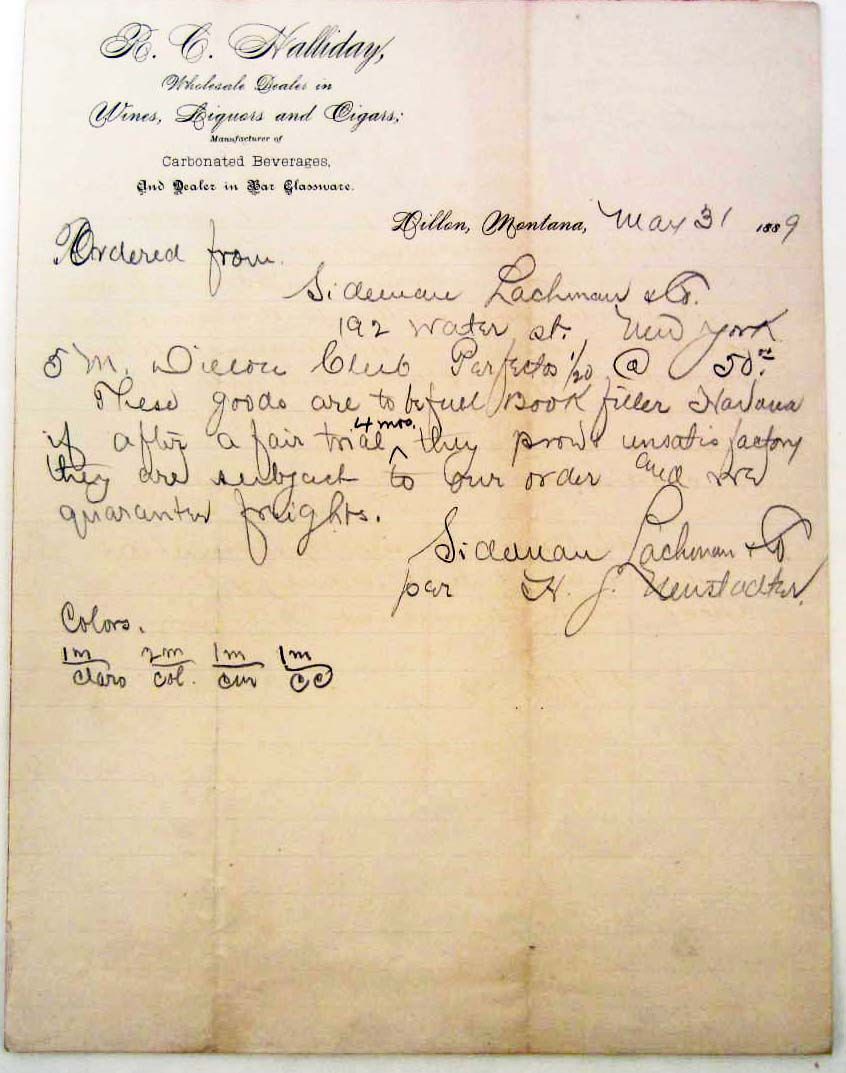 R. C. Halliday,
Wholesale Dealer in
Wines, Liquors and Cigars,
Manufacturer of
Carbonated Beverages,
And Dealer in Bar Glassware.
Dillon, Montana, May 31 1889
Ordered from
Sideman Lachman & Co.
192 Water st. New York
5 M. Dillon Club Perfectos 1/20 @ 50.
These goods are to be full Book filler Havana
if after a fair trial 4 mos. they prove unsatisfactory
they are subject to our order and we
guarantee freights.
Sideman Lachman & Co.
per H. J. Neustadter.
Colors.
1m 2m 1m 1m
claro col. cm CC